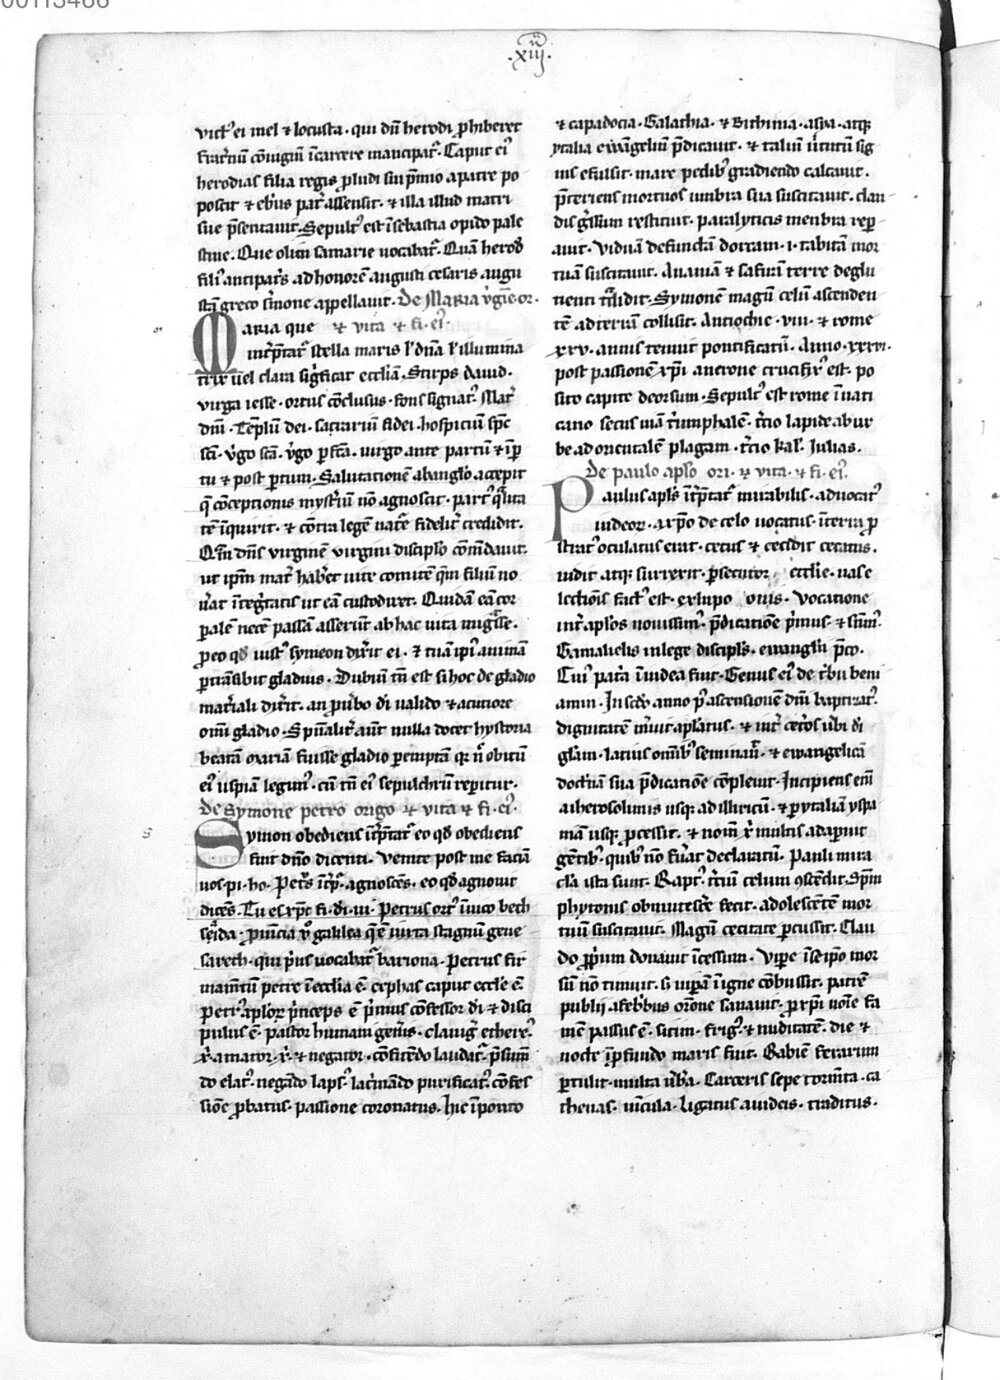 00113466
.xiii.
vict᷒ ei mel ⁊ locusta. qui dū herodi ꝓhiberet
fraternū cōiugiū ī carcere mancipat᷑. Caput ei᷒
herodias filia regis ꝓ ludi sui p̄mio a patre po
poscit ⁊ ebrius pat᷑ assensit. ⁊ illa illud matri
sue p̄sentauit. Sepult᷒ est ī sebastia opido pale
stine. Que olim samarie vocabat᷑. Quā herod᷒
fili᷒ antipatris ad honorē augusti cesaris augu
stā greco s̄mone appellauit. De Maria v̄gīe. or.
Maria que ⁊ vita ⁊ fi. ei᷒.
int̄p̄tat᷑ stella maris l᷑ dn̄a l᷑ illumina
trix uel clara sig̅ficat eccl̄iam. Stirps dauid.
virga iesse. ortus cōclusus. fons signat᷒. Mat᷑
dn̄i. Tēplū dei. sacrariū fidei. hospiciū sp̄c
sc̄i. v̄go sc̄a. v̄go p̄fc̄a. uirgo ante partū ⁊ ī ꝑ
tu ⁊ post ꝑtum. Salutationē ab angl̄o accepit
q̄ cōceptionis myst̄iū nō agnoscit. part᷒ q̄lita
tē īquirit. ⁊ cōtra legē nat̄e fidelit᷑ credidit.
Q̄m dn̄s virginē virgini discipl̄o cōmdauit.
ut ip̄m mat᷑ hab̄et uite comitē q̄m filiū no
u̅at īteg̅tatis ut eā custodiret. Quidā eā cor
ꝑalē necē passā asserūt ab hac uita mig̅sse.
ꝓ eo qd̄ iust᷒ symeon dixit ei. ⁊ tuā ip̄i᷒ animā
ꝑtrāsibit gladius. Dubiū tn̄ est si hoc de gladio
mat̄iali dixit. an ꝓ u̅bo d̄i ualido ⁊ acutiore
om̄i gladio. Sp̄ualit᷑ aūt nulla docet hystoria
beatā mariā fuisse gladio ꝑemptā q̄ nō obitū
ei᷒ uspiā legim᷒. cū tn̄ ei᷒ sepulchrū reperit᷑.
de Symone petro origo ⁊ vita ⁊ fi. ei᷒.
Symon obediens īt̄p̄tat᷑ eo qd̄ obediens
fuit dn̄o dicenti. venite post me faciā
uos. pi. ho. Pet᷒ īt̄p̄. agnoscēs. eo qd̄ agnouit
dicēs. Tu es xp̄c fi. d̄i. ui. Petrus ort᷒ ī uico beth
seida. ꝓuincia v̄o galilea q̄ ē iuxta stagnū gene
sareth. qui p̄us uocabat᷑ bariona. Petrus fir
mamētū petre ī eccl̄ia ē. cephas caput eccl̄e ē.
Petr᷒ apl̄oꝝ p̄nceps ē p̄mus cōfessor d̄i ⁊ disci
pulus ē. pastor humani gen̄is. clauig̅ ethere᷒.
x̄ amator. x̄. ⁊ negator. cōfitēdo laudat᷑. p̄sum
do elat᷒. negādo laps᷒. lac̄mādo purificat᷒. cōfes
siōe ꝓbatus. passione coronatus. hic ī ponto
⁊ capadocia. Galathia. ⁊ Bithinia. asya. atqꝫ
ytalia ewāgeliū p̄dicauit. ⁊ taliū ūtutū sig
nis efulsit. mare pedib᷒ gradiendo calcauit.
p̄teriens mortuos umbra sua suscitauit. clau
dis g̅ssum restituit. paralyticis menbra rep
auit. Viduā defunctā dorcam. i. tabitā mor
tuā suscitauit. Ananiā ⁊ safirā terre deglu
tienti t̄didit. Symonē magū celū ascenden
tē ad terrā collisit. Antiochie. vii. ⁊ rome
xxv. annis tenuit pontificatū. Anno. xxxvi.
post passionē xp̄i a nerone crucifix᷒ est. po
sito capite deorsum. Sepult᷒ est rome ī uati
cano secus uiā t̄umphalē. t̄cio lapide ab ur
be ad orientalē plagam. t̄cio kal̄. Julias.
De paulo apl̄o ori. ⁊ vita. ⁊ fi. ei᷒.
Paulus apl̄s īt̄p̄tat᷑ mirabilis. aduocat᷒
iudeoꝝ. a xp̄o de celo uocatus. ī terrā ꝓ
strat᷒ oculatus erat. cecus ⁊ cecidit cecatus.
uidit atqꝫ surrexit. ꝑsecutor eccl̄ie. uas e
lectiōis fact᷒ est. ex lupo ouis. vocatione
int᷑ apl̄os nouissim᷒. p̄dicatiōe p̄mus. ⁊ sūm᷒.
Gamalielis in lege discipl̄s. ewangl̄ii p̄co.
Cui᷒ pat̄a ī iudea fuit. Genus ei᷒ de t̄bu beni
amin. In sc̄do anno p᷒ ascensionē dn̄i baptizat᷒.
dignitatē m̄uit apl̄atus. ⁊ int᷑ cet̄os u̅bi d̄i
gl̄iam. latius om̄ib᷒ seminauit. ⁊ ewangelicā
doct̄nā sua p̄dicatiōe cōpleuit. Incipiens em̄
a iherosolimis usqꝫ ad illiricū. ⁊ ꝑ ytaliā yspa
niā usqꝫ ꝓcessit. ⁊ nom̄ x̄ multis adaperuit
gētib᷒. quib᷒ nō fu̅at declaratū. Pauli mira
cl̄a ista sunt. Rapt᷒ t̄ciū celum ꝯscēdit. Sp̄m
phytonis obmutesc̄e fecit. adolescētē mor
tuū suscitauit. Magū cecitate ꝑcussit. Clau
do ꝓprium donauit īcessum. Vipe᷑ īseip̄o mor
sū nō timuit. s; uiꝑam ī igne cōbussit. patrē
publij a febribus or̄one sanauit. ꝓ xp̄i noīe fa
mē passus ē. sitim. frig᷒. ⁊ nuditatē. die ⁊
nocte ī ꝓfundo maris fuit. Rabiē ferarum
ꝑtulit. multa u̅ba. Carceris sepe torm̄ta. ca
thenas. uīcula. ligatus a iudeis. traditus.